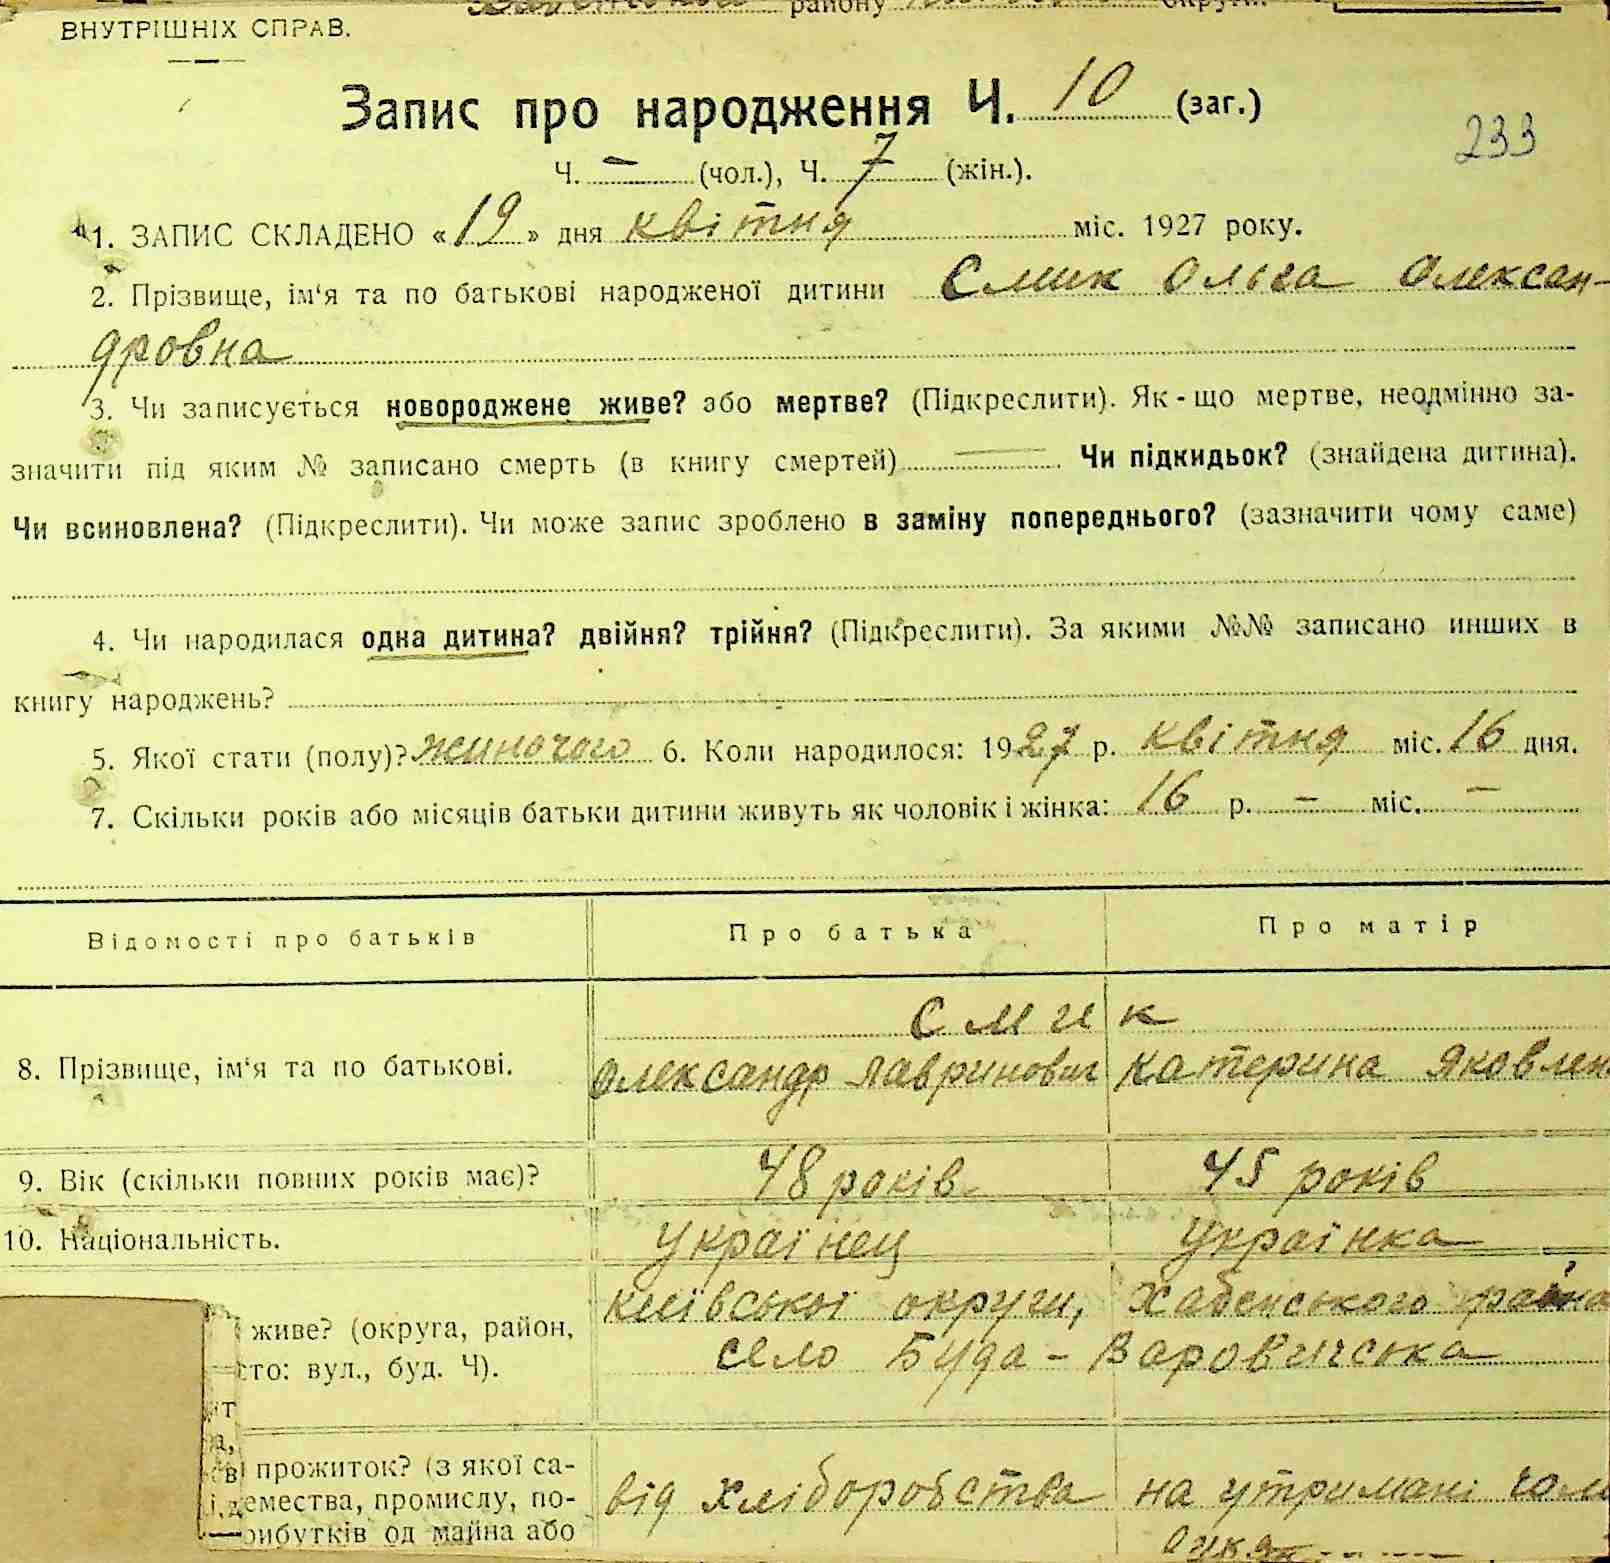 району
ВНУТРІШНІХ СПРАВ.
Запис про народження Ч. 10 (заг.)
233
Ч. — (чол.), Ч. 7 (жін.).
1. ЗАПИС СКЛАДЕНО «19» дня квітня міс. 1927 року.
2. Прізвище, ім‘я та по батькові народженої дитини Смик Ольга Олексан-
дровна
3. Чи записується новороджене живе? або мертве? (Підкреслити). Як-що мертве, неодмінно за-
значити під яким № записано смерть (в книгу смертей) — Чи підкидьок? (знайдена дитина).
Чи всиновлена? (Підкреслити). Чи може запис зроблено в заміну попереднього? (зазначити чому саме)
4. Чи народилася одна дитина? двійня? трійня? (Підкреслити). За якими №№ записано инших в
книгу народжень?
5. Якої стати (полу)? жиночого 6. Коли народилося: 1927 р. квітня міс. 16 дня.
7. Скільки років або місяців батьки дитини живуть як чоловік і жінка: 16 р. — міс. —
Відомості про батьків Про батька Про матір
Смик
8. Прізвище, ім‘я та по батькові. Олександр Лавринович Катерина Яковлен
9. Вік (скільки повних років має)? 48 років 45 років
10. Національність. Українец Українка
Київської округи, Хабенського района
живе? (округа, район,
село Буда-Варовичська
сто: вул., буд. Ч).
прожиток? (з якої са-
від хліборобства на утримані чол
емества, промислу, по-
рибутків од майна або
овика